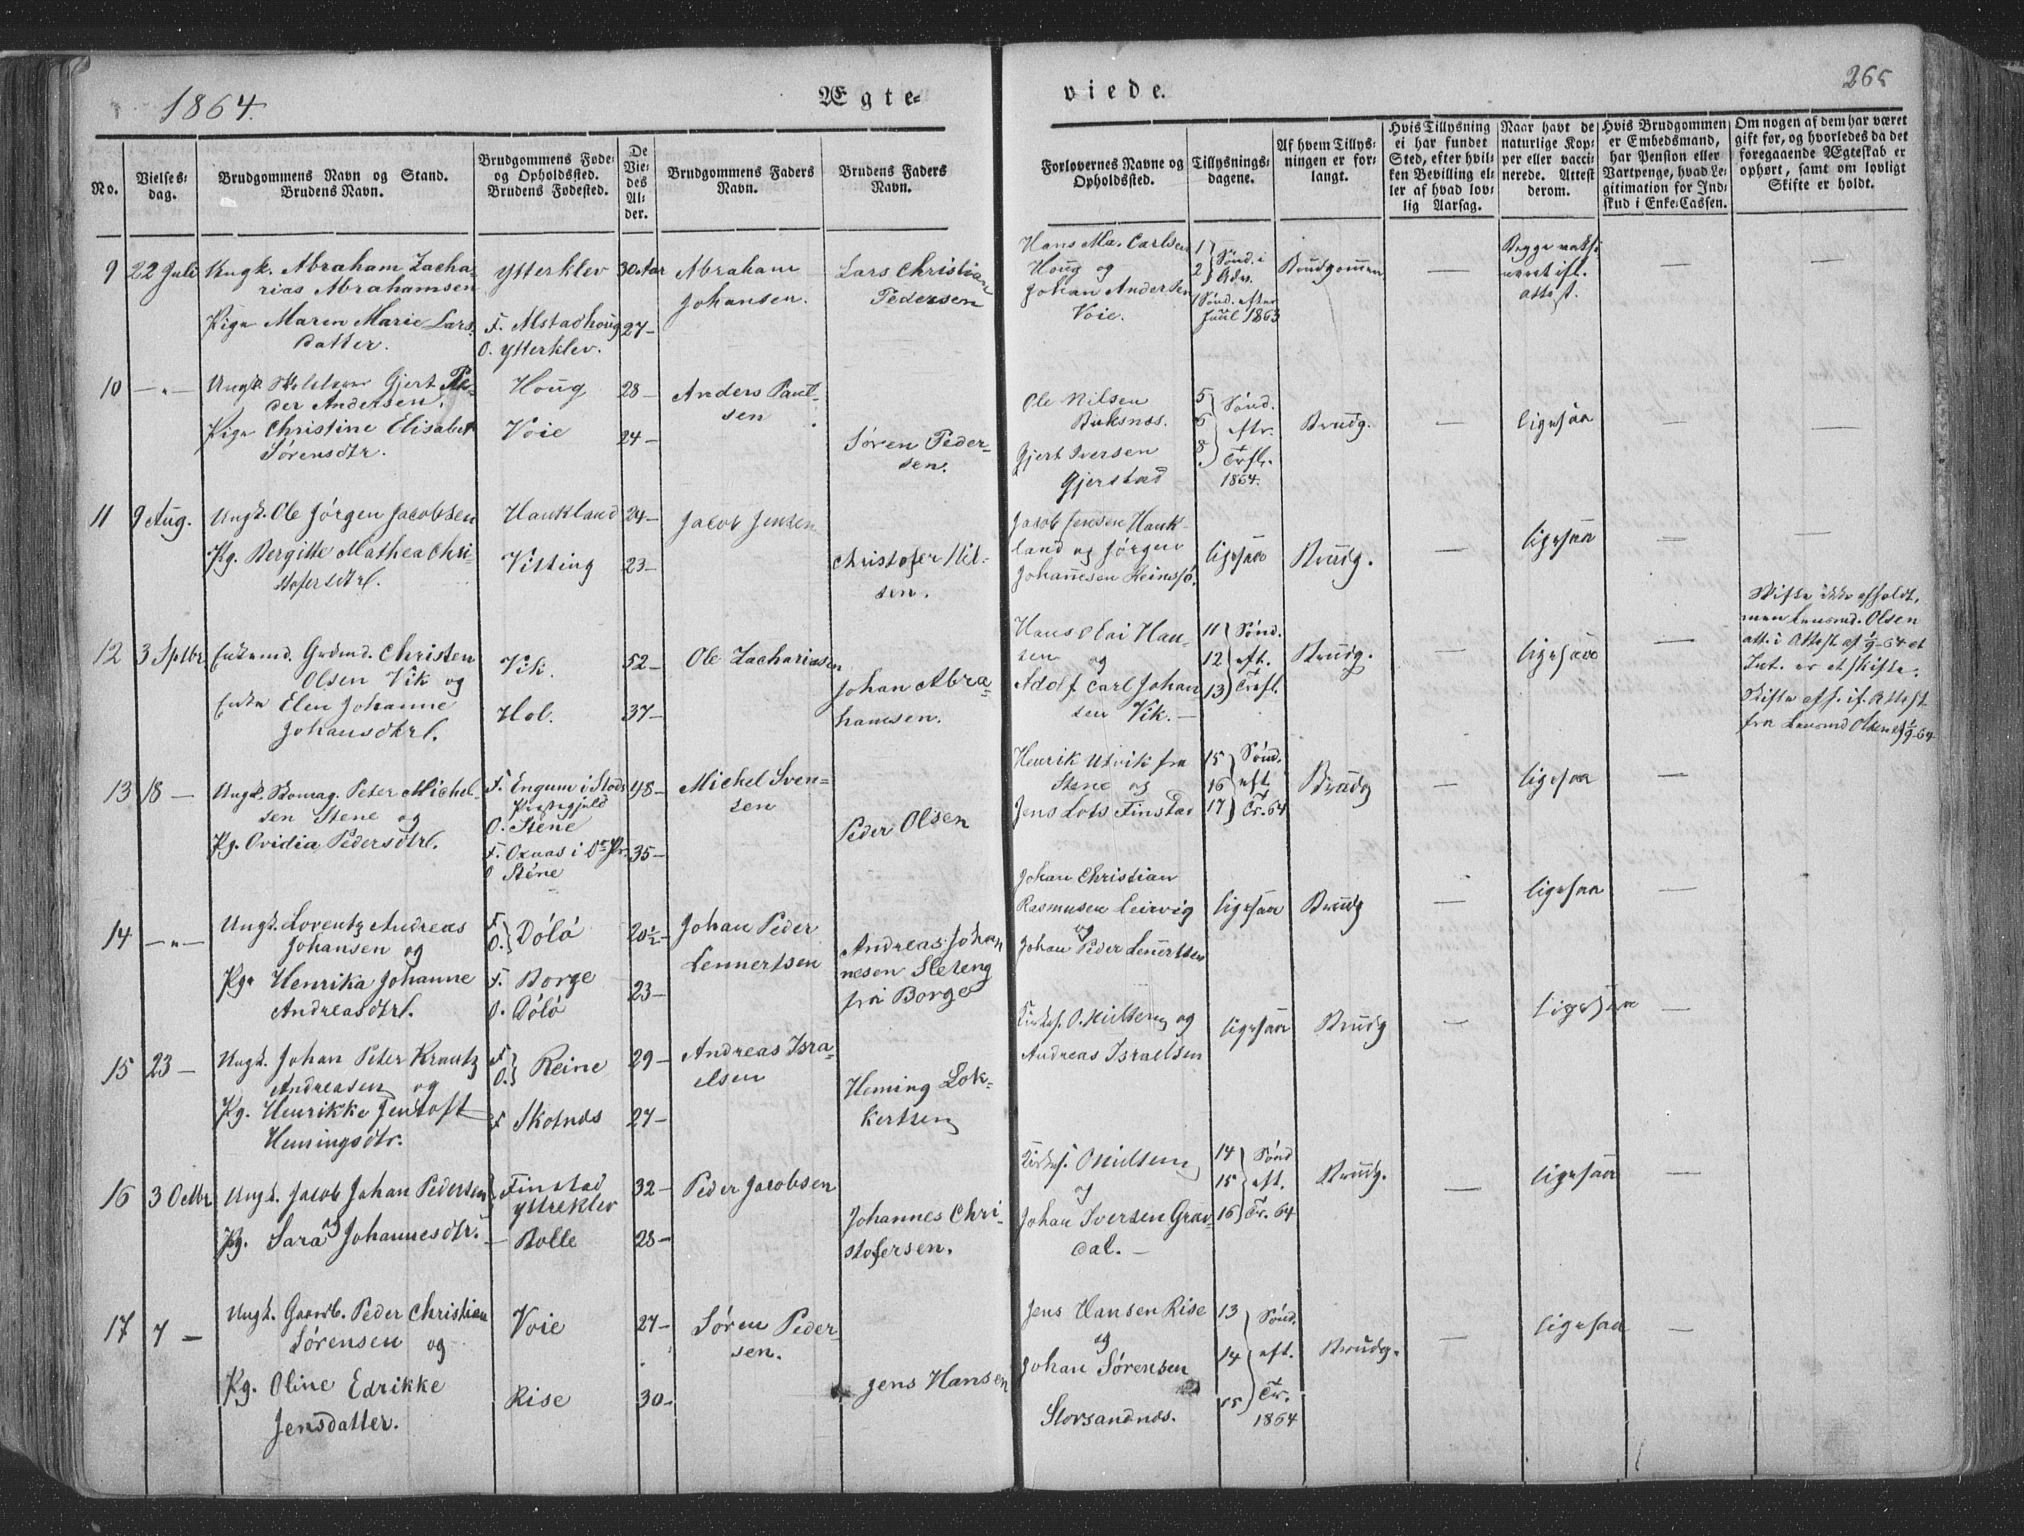 1864.
Ægte-
viede.
265
No.
Vielses-
dag.
Brudgommens Navn og Stand.
Brudens Navn.
Brudgommens Føde-
og Opholdssted.
Brudens Fødested.
De
Vie-
des
Al-
der.
Brudgommens Faders
Navn.
Brudens Faders
Navn.
Forlovernes Navne og
Opholdssted.
Tillysnings-
dagene.
Af hvem Tillys-
ningen er for-
langt.
Hvis Tillysning
ei har fundet
Sted, efter hvil-
ken Bevilling el-
ler af hvad lov-
lig Aarsag.
Naar havt de
naturlige Kop-
per eller vacci-
nerede. Attest
derom.
Hvis Brudgommen
er Embedsmand,
har Pension eller
Vartpenge, hvad Le-
gitimation for Ind-
skud i Enke-Cassen.
Om nogen af dem har været
gift før, og hvorledes da det
foregaaende Ægteskab er
ophørt, samt om lovligt
Skifte er holdt.
9
22 Juli
Ungk. Abraham Zacha-
rias Abrahamsen
Pige Maren Marie Lars-
Datter.
Ytterklev
F. Alstadhoug
O. Ytterklev.
30 Aar
27—
Abraham
Johansen.
Lars Christian
Pedersen
Hans Ma. Carlsen
Houg og
Johan Andersen
Voie.
1 } Sønd. i
2 } Adv.
1 Sønd. efter
Juul 1863
Brudgommen
—
Begge vaksi-
neret ifl.
Attest.
—
—
10
—„—
Ungk. Gjert Pe-
der Andersen.
Pige Christine Elisabet
Sørensdtr.
Houg
Voie
28—
24—
Anders Paul-
sen
Søren Peder-
sen.
Ole Nilsen
Buksnæs.
Gjert Iversen
Gjerstad
5 } Sønd.
6 } eftr.
8 } Trfl.
1864.
Brudg.
—
ligesaa
—
—
11
9 Aug.
Ungk. Ole Jørgen Jacobsen
Pg. Bergitte Mathea Chri-
stofersdtr.
Haukland
Vitting
24—
23—
Jacob Jensen
Christofer Nil-
sen.
Jacob Jensen Hauk-
land og Jørgen
Johannesen Reinsjö.
ligesaa
Brudg.
—
ligesaa
—
—
12
3 Sptbr
Enkemd. Grdmd. Christen
Olsen Vik og
Enke Elen Johanne
Johansdtr.
Vik.
Hol.
52—
37—
Ole Zachariasen
Johan Abra-
hamsen.
Hans Han-
sen og
Adolf Carl Johan
sen Vik.—
11 } Sønd.
12 } eft.
13 } Trfl.
Brudg.
—
ligesaa
—
Skifte ikke afholdt,
men Lensmd. Olsen
att. i Attest af 1/9-64 et
Int. er et skifte.
Skifte aff. if. Attest
fra Lensmd Olsen af 1/9-64
13
18—
Ungk. Peter Michel-
sen Stene og
Pg. Ovidia Pedersdtr.
F. Engum i Stods
Præstegjeld
O. Stene
F. Oxnæs i Do Pr.
O Stene
48—
35—
Michel Sven-
sen
Peder Olsen
Henrik Utvik fra
Stene og
Jens Lots Finstad
15 } Sønd.
16 } eft.
17 } Tr. 64
Brudg
—
ligesaa
—
14
—„—
Ungk. Lorentz Andreas
Johansen og
Pge Henrika Johanne
Andreasdtr.
F.
O. } Dölö
F. Borge
O. Dölö
20 1/2—
23—
Johan Peder
Lennertsen
Andreas Johan
nesen Sleteng
fra Borge
Johan Christian
Rasmusen Leirvig
og
Johan Peder Lenertsen
ligesaa
Brudg
—
ligesaa
—
15
23—
Ungk. Johan Peter Krantz
Andreasen og
Pg. Henrikke Jentoft
Hemingsdtr.
F.
O. } Reine
F Skotnæs
29—
27—
Andreas Isra-
elsen
Heming Lok-
kertsen
Kirkes. O. Mielsen og
Andreas Israelsen
ligesaa
Brudg
—
ligesaa
—
16
3 Octbr
Ungk. Jacob Johan Pedersen
og
Pg. Sara Johannesdtr.
Finstad
Yttreklev
— Bolle
32—
28—
Peder Jacobsen
Johannes Chri-
stofersen.
Kirkes. O Mielsen
og
Johan Iversen Grav-
dal.—
14 } Sønd
15 } eft.
16 } Tr. 64
Brudg.
—
ligesaa
—
17
7—
Ungk. Gaardb. Peder Christian
Sørensen og
Pg. Oline Edrikke
Jensdatter.
Voie
Rise
27—
30—
Søren Peder-
sen.
Jens Hansen
Jens Hansen Rise
og
Johan Sørensen
Storsandnæs.
13 } Sønd.
14 } eft.
15 } Tr.
1864
Brudg.
—
ligesaa
—